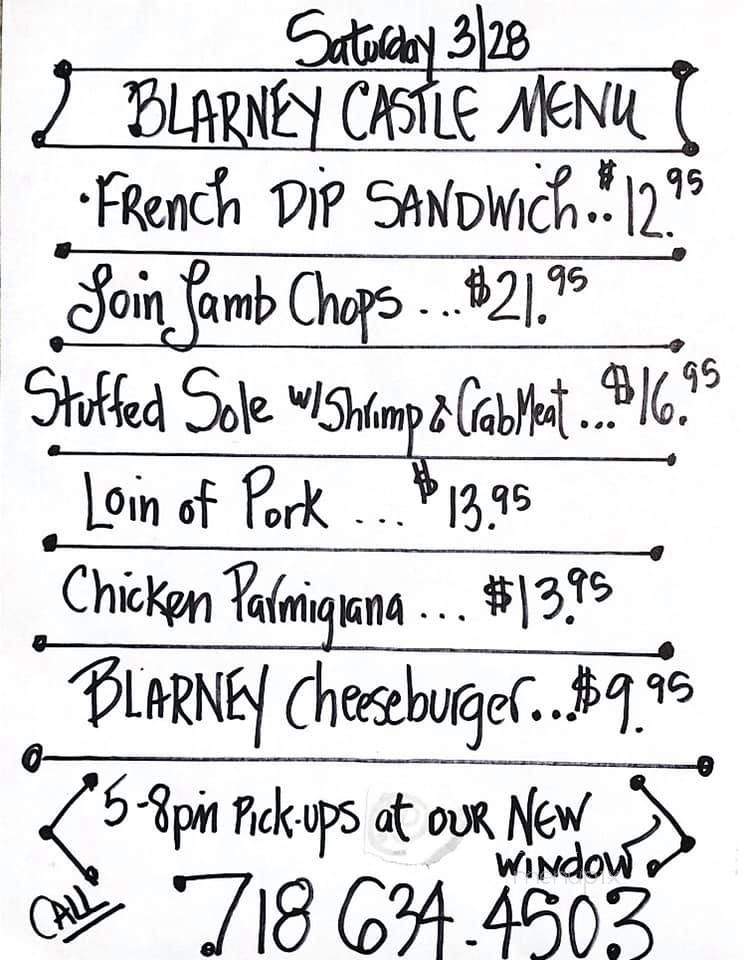 Saturday 3/28
BLARNEY CASTLE MENU
·FRENCH DIP SANDWICH..$12.95
Loin Lamb Chops ...$21.95
Stuffed Sole w/Shrimp & CrabMeat ...$16.95
Loin of Pork ... $13.95
Chicken Parmigiana ... $13.95
BLARNEY Cheeseburger...$9.95
5-8pm Pick-ups at OUR NEW
WINDOW
CALL
718 634.4503